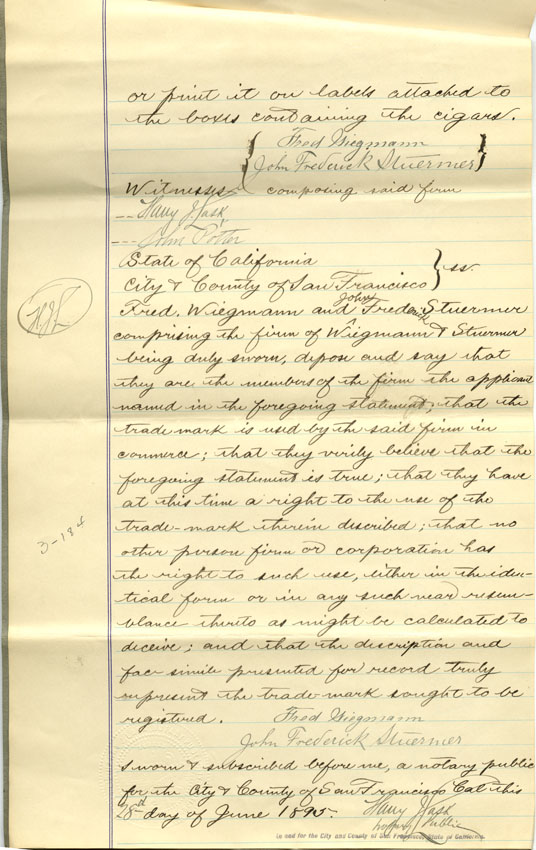 or print it on labels attached to
the boxes containing the cigars.
Fred Wiegmann
John Frederick Stuermer
Witnesses composing said firm
Harry J. Lask
John Potter
State of California
City & County of San Francisco } ss.
HJL
Fred. Wiegmann and John Frederick Stuermer
comprising the firm of Wiegmann & Stuermer
being duly sworn, depose and say that
they are the members of the firm the applicant
named in the foregoing statement; that the
trade mark is used by the said firm in
commerce; that they verily believe that the
foregoing statement is true; that they have
at this time a right to the use of the
trade-mark therein discribed; that no
3-184
other person firm or corporation has
the right to such use, either in the iden-
tical form or in any such near resem-
blance thereto as might be calculated to
deceive; and that the discription and
fac-simile presented for record truly
represent the trade-mark sought to be
registered. Fred Wiegmann
John Frederick Stuermer
Sworn & subscribed before me, a notary public
for the City & County of San Francisco Cal this
28th day of June 1895. Harry J. Lask
Notary Public
in and for the City and County of San Francisco, State of California.